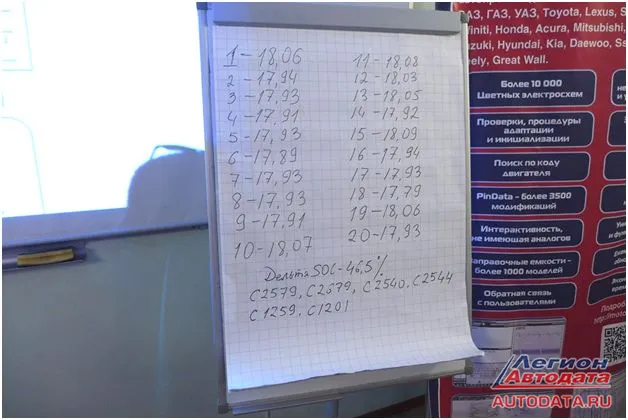 1 – 18,06
2 – 17,94
3 – 17,93
4 – 17,91
5 – 17,93
6 – 17,89
7 – 17,93
8 – 17,93
9 – 17,91
10 – 18,07
11 – 18,08
12 – 18,03
13 – 18,05
14 – 17,92
15 – 18,09
16 – 17,94
17 – 17,93
18 – 17,79
19 – 18,06
20 – 17,93
Дельта SOC – 46,5%
C2579, C2679, C2540, C2544
C1259, C1201
АЗ, ГАЗ, УАЗ, Toyota, Lexus,
finiti, Honda, Acura, Mitsubishi,
zuki, Hyundai, Kia, Daewoo,
ely, Great Wall.
Более 10 000
Цветных электросхем
Проверки, процедуры
адаптации
и инициализации
Поиск по коду
двигателя
PinData – более 3500
модификаций
Интерактивность,
не имеющая аналогов
аправочные емкости -
более 1000 моделей
Обратная связь
с пользователями
Легион
Автодата
AUTODATA.RU